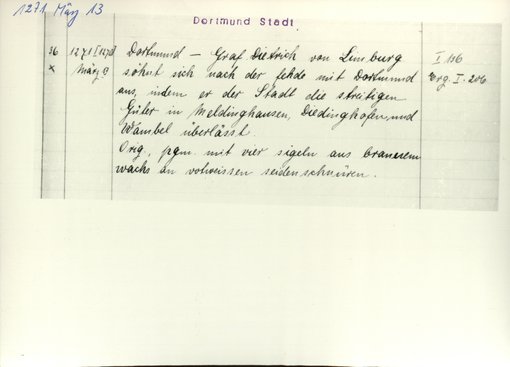 1271 März 13
Dortmund Stadt
36 1271 Dortmund - Graf Dietrich von Limburg I 116
x März 13 söhnt sich nach der fehde mit Dortmund Erg. I. 206
aus, indem er der Stadt die streitigen
Güter in Meldinghausen, Diedinghofen und
Wambel überlässt.
Orig. pgm. mit vier sigeln aus braunem
wachs an rotweissen seidenschnüren.